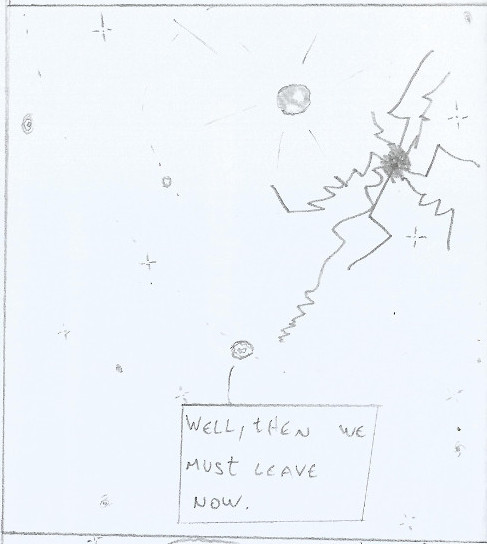 WELL, tHEN WE
MUSt LEAVE
NOW.